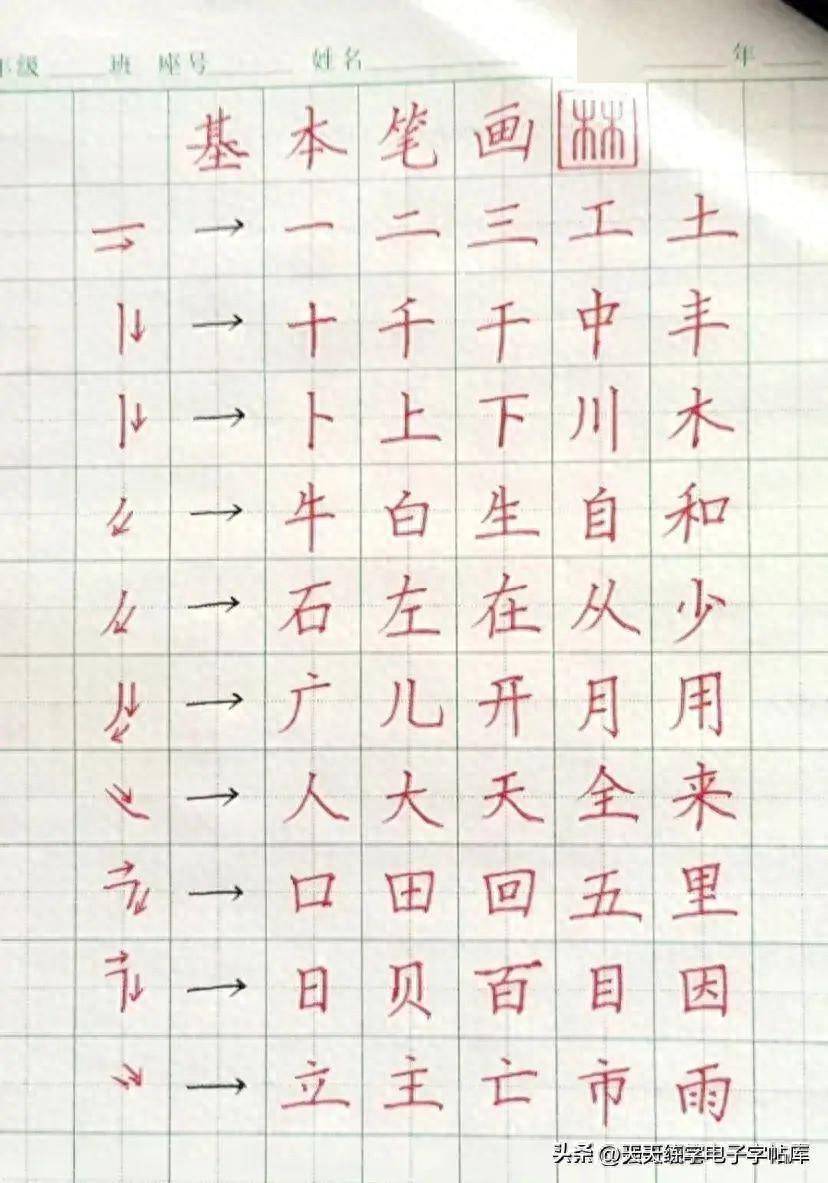 年级 班 座号 姓名 年
基本笔画 林
一 → 一 二 三 工 土
丨 → 十 千 干 中 丰
丨 → 卜 上 下 川 木
丿 → 牛 白 生 自 和
丿 → 石 左 在 从 少
丿 → 广 儿 开 月 用
㇏ → 人 大 天 全 来
𠃍 → 口 田 回 五 里
𠃍 → 日 贝 百 目 因
丶 → 立 主 亡 市 雨
头条 @天天练字电子字帖库